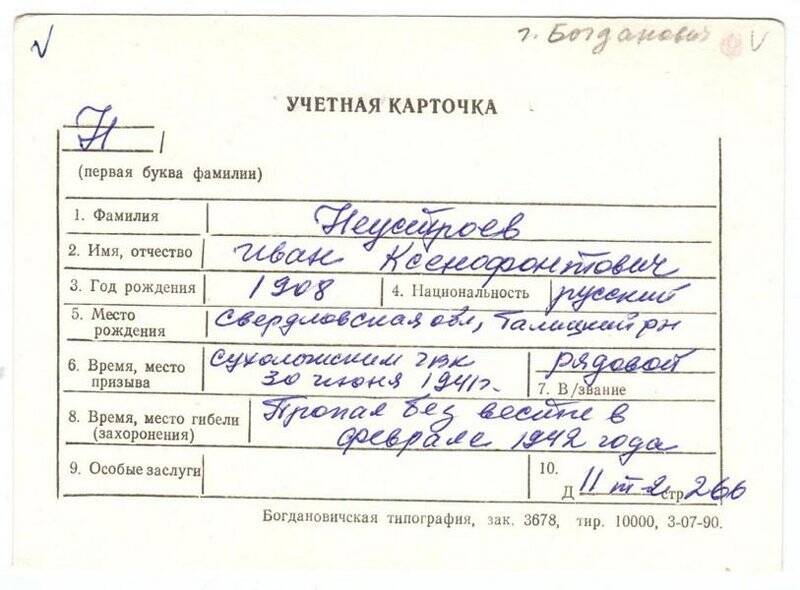 г. Богданович
УЧЕТНАЯ КАРТОЧКА
Н
(первая буква фамилии)
1. Фамилия Неустроев
2. Имя, отчество Иван Ксенофонтович
3. Год рождения 1908 4. Национальность русский
5. Место рождения Свердловская обл, Талицкий рн
6. Время, место призыва Сухоложским гвк 30 июня 1941г.
рядовой
7. В/звание
8. Время, место гибели (захоронения) Пропал без вести в феврале 1942 года
9. Особые заслуги
10.
Д 11 т-2 стр 266
Богдановичская типография, зак. 3678, тир. 10000, 3-07-90.